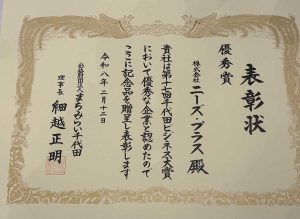 表彰状
優秀賞
株式会社
ニーズ・プラス 殿
貴社は第十七回千代田ビジネス大賞
において優秀な企業と認めたので
ここに記念品を贈呈し表彰します
令和八年二月十二日
公益財団法人まちみらい千代田
理事長 細越正明